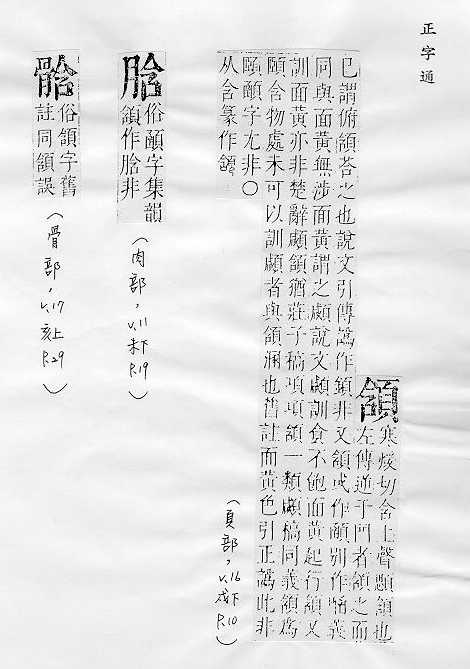 正字通
頷
寒煖切含上聲頷也
左傳逆于門者頷之而
已謂俯頷荅之也說文引傳譌作非又頷或作顄別作義
同與面黃無涉面黃謂之顑說文顑訓食不飽面黃起行頷又
訓面黃亦非楚辭顑頷猶莊子槁項項頷一類顑槁同義頷為
頤含物處未可以訓顑者與頷溷也舊註面黃色引正譌此非
頤顄字尤非○
从含篆作
(頁部, v.16 戌下 P.10)
肣
俗顄字集韻
頷作肣非
(肉部, v.11 未下 P.19)
骱
俗頷字舊
註同頷誤
(骨部, v.17 亥上 P.29)